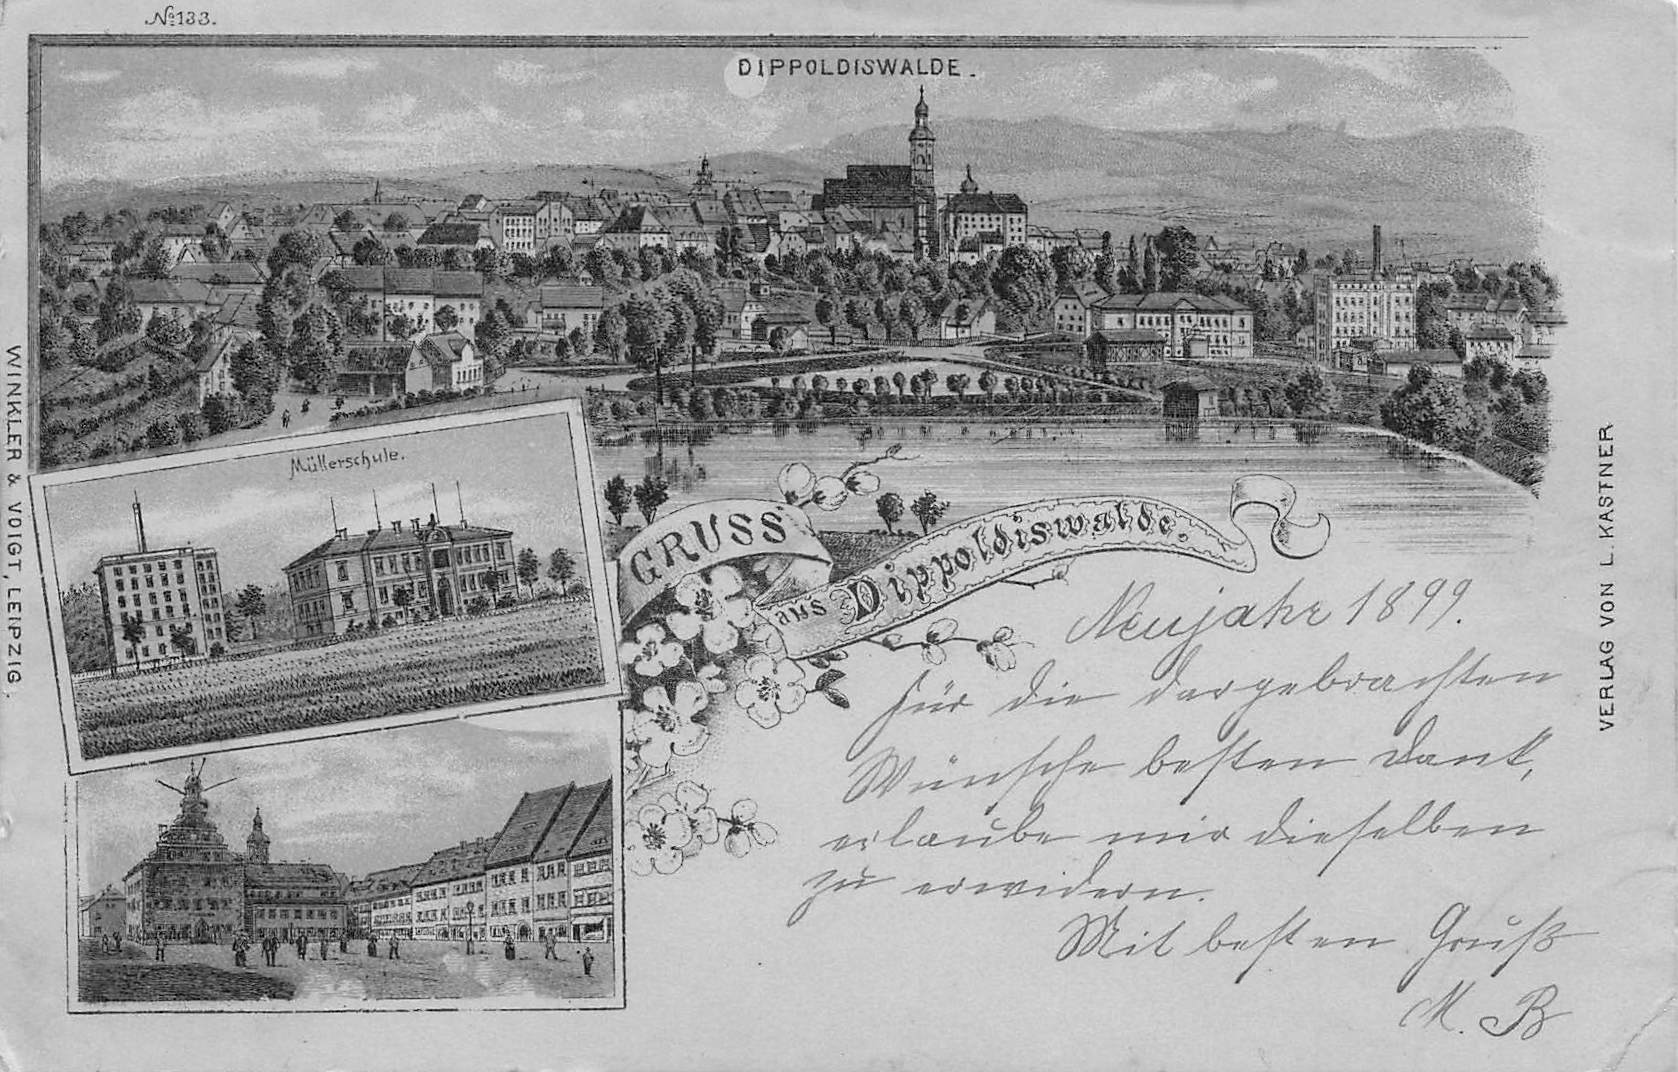 No 133.
DIPPOLDISWALDE.
Müllerschule.
GRUSS
aus Dippoldiswalde.
Neujahr 1899.
Für die dargebrachten
Wünsche besten Dank,
erlaube mir dieselben
zu erwidern.
Mit besten Gruß
M. B
WINKLER & VOIGT, LEIPZIG.
VERLAG VON L. KASTNER